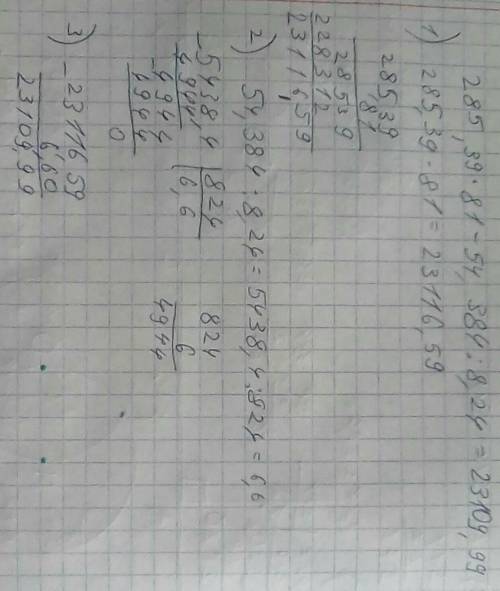 285,39·81-54,384:8,24=23109,99
1) 285,39·81=23116,59
285,39
81
28539
228312
23116,59
2) 54,384:8,24=5438,4:824=6,6
-5438 4 | 824
4944 6,6
-4944
4944
0
824
6
4944
3) -23116 59
6,60
23109,99